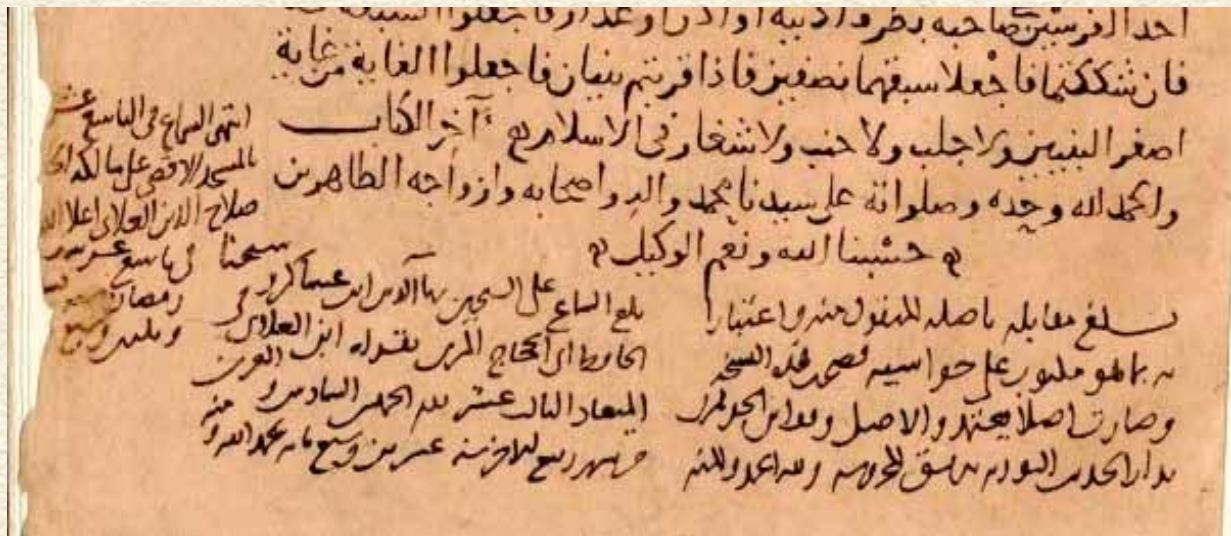 احد الفرسين صاحبه بطرف اذنيه او اذن او عذار فاجعلوا السبقة له
فان شككتما فاجعلا سبقهما نصفين فاذا قرنتم ثنيان فاجعلوا الغاية من غاية
اصغر الثنيين ولا جلب ولا جنب ولا شغار في الاسلام آخر الكتاب
والحمد لله وحده وصلواته على سيدنا محمد واله واصحابه وازواجه الطاهرين
حسبنا الله ونعم الوكيل
بلغ مقابله باصله المنقول منه واعتبارا
به بما هو مكتوب على حواشيه فصحت هذه النسخه
وصارت اصلا يعتمد والاصل
بدار الحديث النوريه بدمشق المحروسه ولله الحمد والمنه
بلغ السماع على الشيخين بها الدين ابن عساكر
الحافظ ابي الحجاج المزي بقراه ابن العلائي
الميعاد الثالث عشر يوم الخميس السادس
من شهر ربيع الاخر سنه عشرين وسبع مايه بحمد الله ومنه
انتهى السماع في التاسع عشر
بالمسجد الاقصى على مالكه
صلاح الدين العلائي
شيخنا في تاسع عشر
رمضان